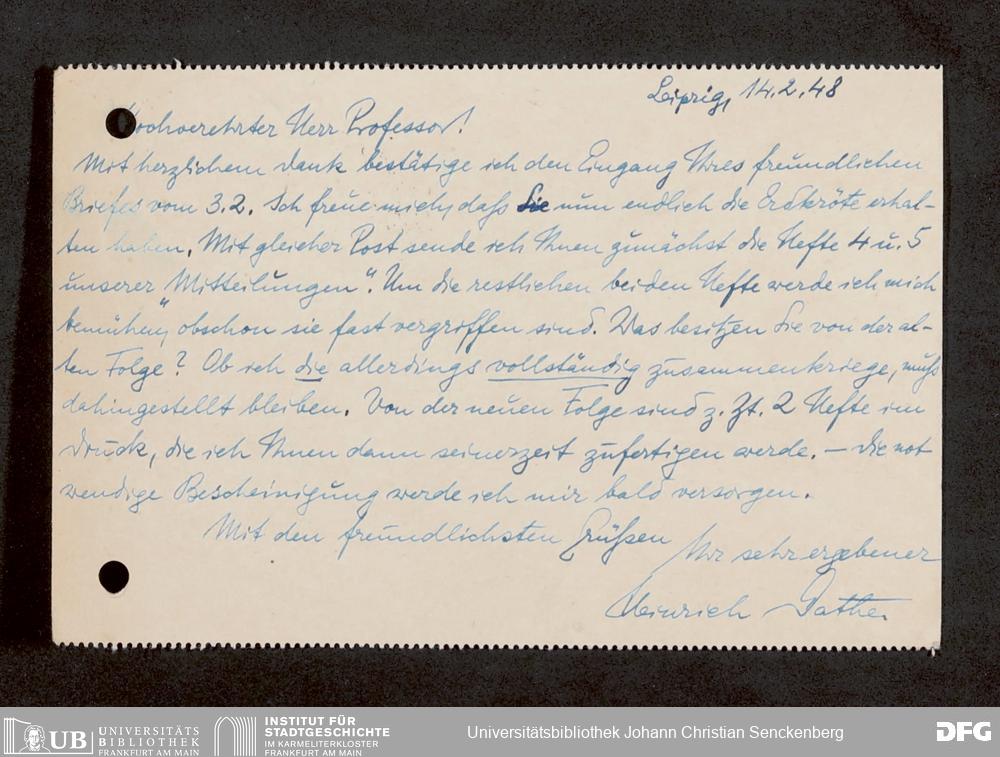 Leipzig, 14.2.48
Hochverehrter Herr Professor!
Mit herzlichem Dank bestätige ich den Eingang Ihres freundlichen
Briefes vom 3.2. Ich freue mich, daß Sie nun endlich die Erdkröte erhal-
ten haben. Mit gleicher Post sende ich Ihnen zunächst die Hefte 4 u. 5
unserer „Mitteilungen“. Um die restlichen beiden Hefte werde ich mich
bemühen, obschon sie fast vergriffen sind. Was besitzen Sie von der al-
ten Folge? Ob ich die allerdings vollständig zusammenkriege, muß
dahingestellt bleiben. Von der neuen Folge sind z. Zt. 2 Hefte im
Druck, die ich Ihnen dann seinerzeit zufertigen werde. – Die not
wendige Bescheinigung werde ich mir bald versorgen.
Mit den freundlichsten Grüßen
Ihr sehr ergebener
Heinrich Dathe.
UB UNIVERSITÄTS
BIBLIOTHEK
FRANKFURT AM MAIN
INSTITUT FÜR
STADTGESCHICHTE
IM KARMELITERKLOSTER
FRANKFURT AM MAIN
Universitätsbibliothek Johann Christian Senckenberg
DFG